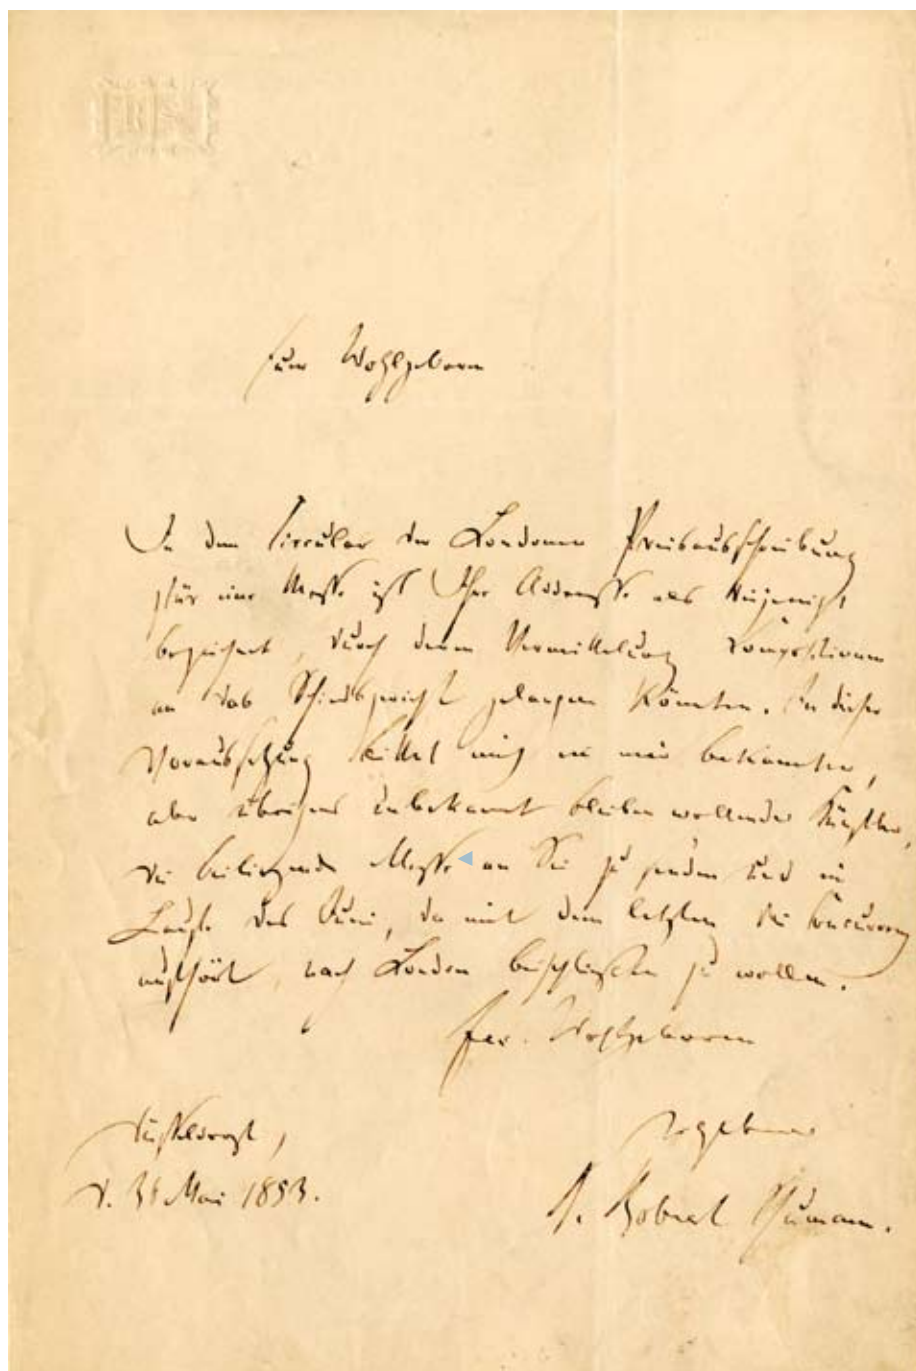 Euer Wohlgeboren
In dem Circular der Londoner Preisausschreibung
für eine Messe ist Ihre Addresse als diejenige
bezeichnet, durch deren Vermittelung Compositionen
an das Schiedsgericht gelangen könnten. In dieser
Voraussetzung bittet mich ein mir bekannter,
aber übrigens unbekannt bleiben wollender Künstler,
die beiliegende Messe an Sie zu senden und im
Laufe des Juni, da mit dem letzten die Concurrenz
aufhört, nach London beischließen zu wollen.
Ew. Wohlgeboren
ergebener
Düsseldorf,
d. Mai 1853.
D. Robert Schumann.